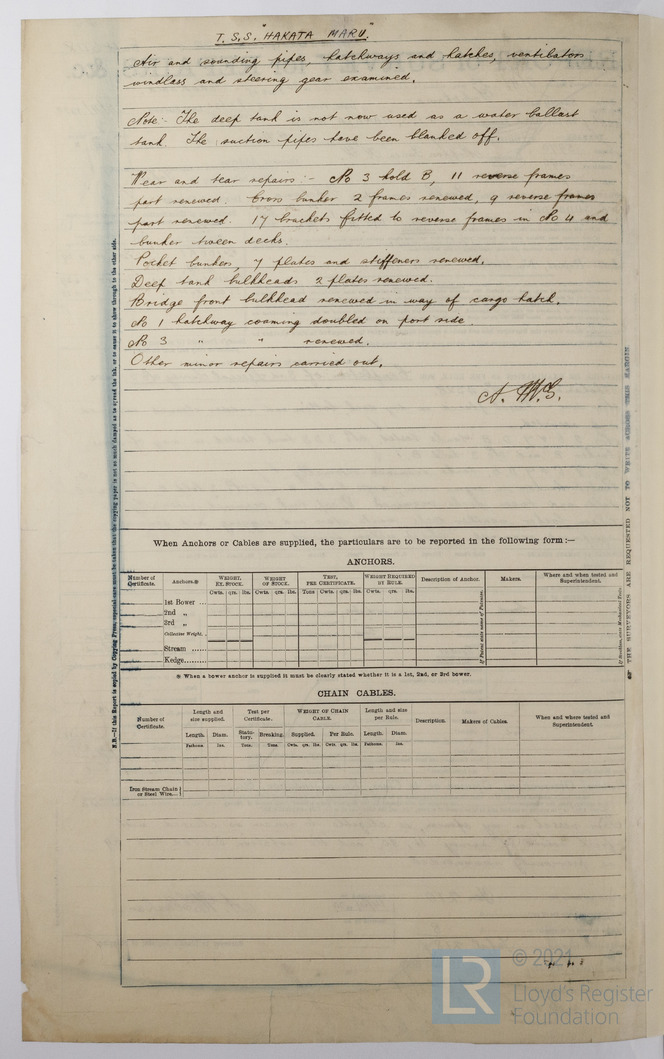 T.S.S. "HAKATA MARU".
Air and sounding pipes, hatchways and hatches, ventilators
windlass and steering gear examined.
Note:- The deep tank is not now used as a water ballast
tank. The suction pipes have been blanked off.
Wear and tear repairs:- No 3 hold B, 11 reverse frames
part renewed. Cross bunker 2 frames renewed, 9 reverse frames
part renewed. 17 brackets fitted to reverse frames in No 4 and
bunker tween decks.
Pocket bunkers, 7 plates and stiffeners renewed.
Deep tank bulkheads 2 plates renewed.
Bridge front bulkhead renewed in way of cargo hatch.
No 1 hatchway coaming doubled on port side.
No 3 " " renewed.
Other minor repairs carried out.
When Anchors or Cables are supplied, the particulars are to be reported in the following form:—
ANCHORS.
Number of Certificate. Anchors.* WEIGHT, EX. STOCK. WEIGHT OF STOCK. TEST, PER CERTIFICATE. WEIGHT REQUIRED BY RULE. Description of Anchor. Makers. Where and when tested and Superintendent.
Cwts. qrs. lbs. Cwts. qrs. lbs. Tons Cwts. qrs. lbs. Cwts. qrs. lbs.
1st Bower ...
2nd „
3rd „
Collective Weight.
Stream ......
Kedge.......
If Patent state name of Patentee.
* When a bower anchor is supplied it must be clearly stated whether it is a 1st, 2nd, or 3rd bower.
CHAIN CABLES.
Number of Certificate. Length and size supplied. Test per Certificate. WEIGHT OF CHAIN CABLE. Length and size per Rule. Description. Makers of Cables. When and where tested and Superintendent.
Length. Diam. Statutory. Breaking. Supplied. Per Rule. Length. Diam.
Fathoms. Ins. Tons. Tons. Cwts. qrs. lbs. Cwts. qrs. lbs. Fathoms. Ins.
Iron Stream Chain
or Steel Wire...
N.B.—If this Report is copied by Copying Press, especial care must be taken that the copying paper is not so much damped as to spread the ink, or to cause it to show through to the other side.
THE SURVEYORS ARE REQUESTED NOT TO WRITE ACROSS THIS MARGIN
© 2021
LR
Lloyd's Register
Foundation